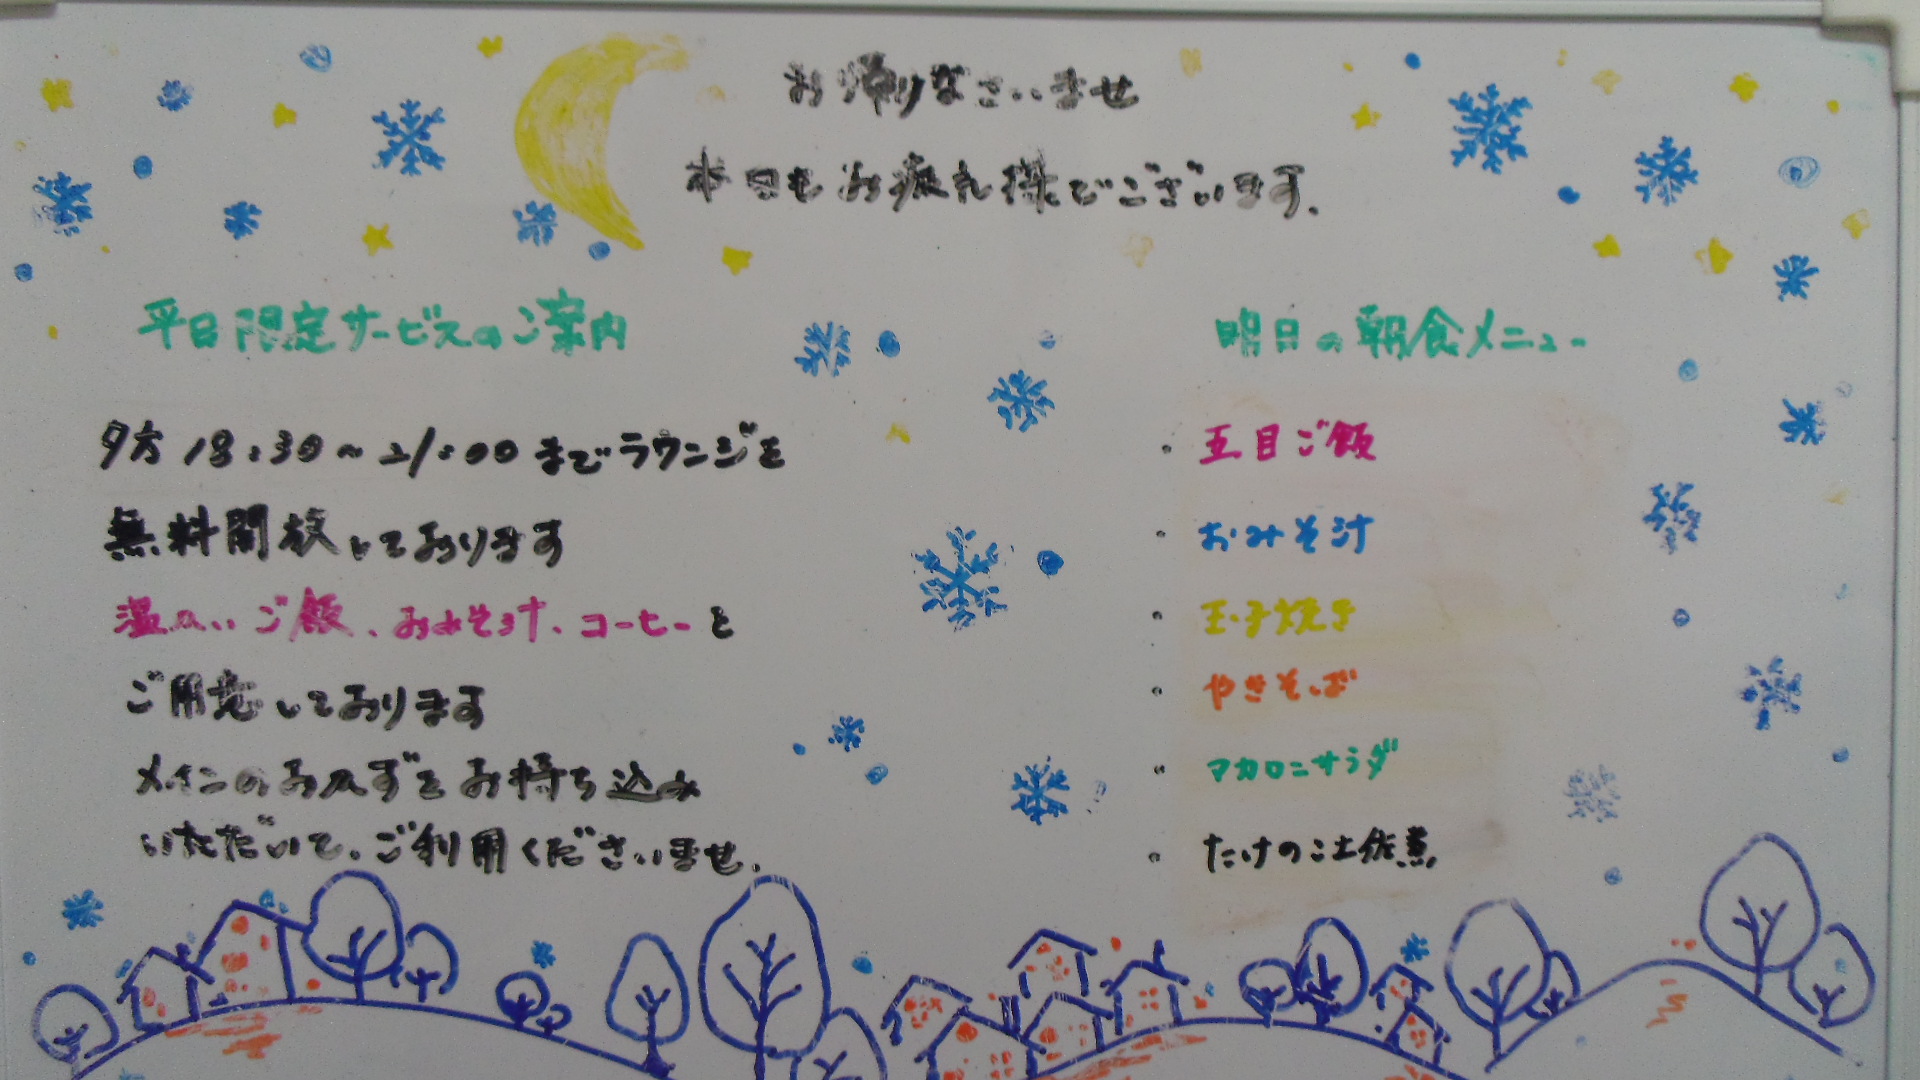 お帰りなさいませ
本日もお疲れ様でございます.
平日限定サービスのご案内
夕方 18:30〜21:00までラウンジを
無料開放しております
温かいご飯、おみそ汁、コーヒーを
ご用意しております
メインのおかずをお持ち込み
いただいて、ご利用くださいませ.
明日の朝食メニュー
・五目ご飯
・おみそ汁
・玉子焼き
・やきそば
・マカロニサラダ
・たけのこ土佐煮